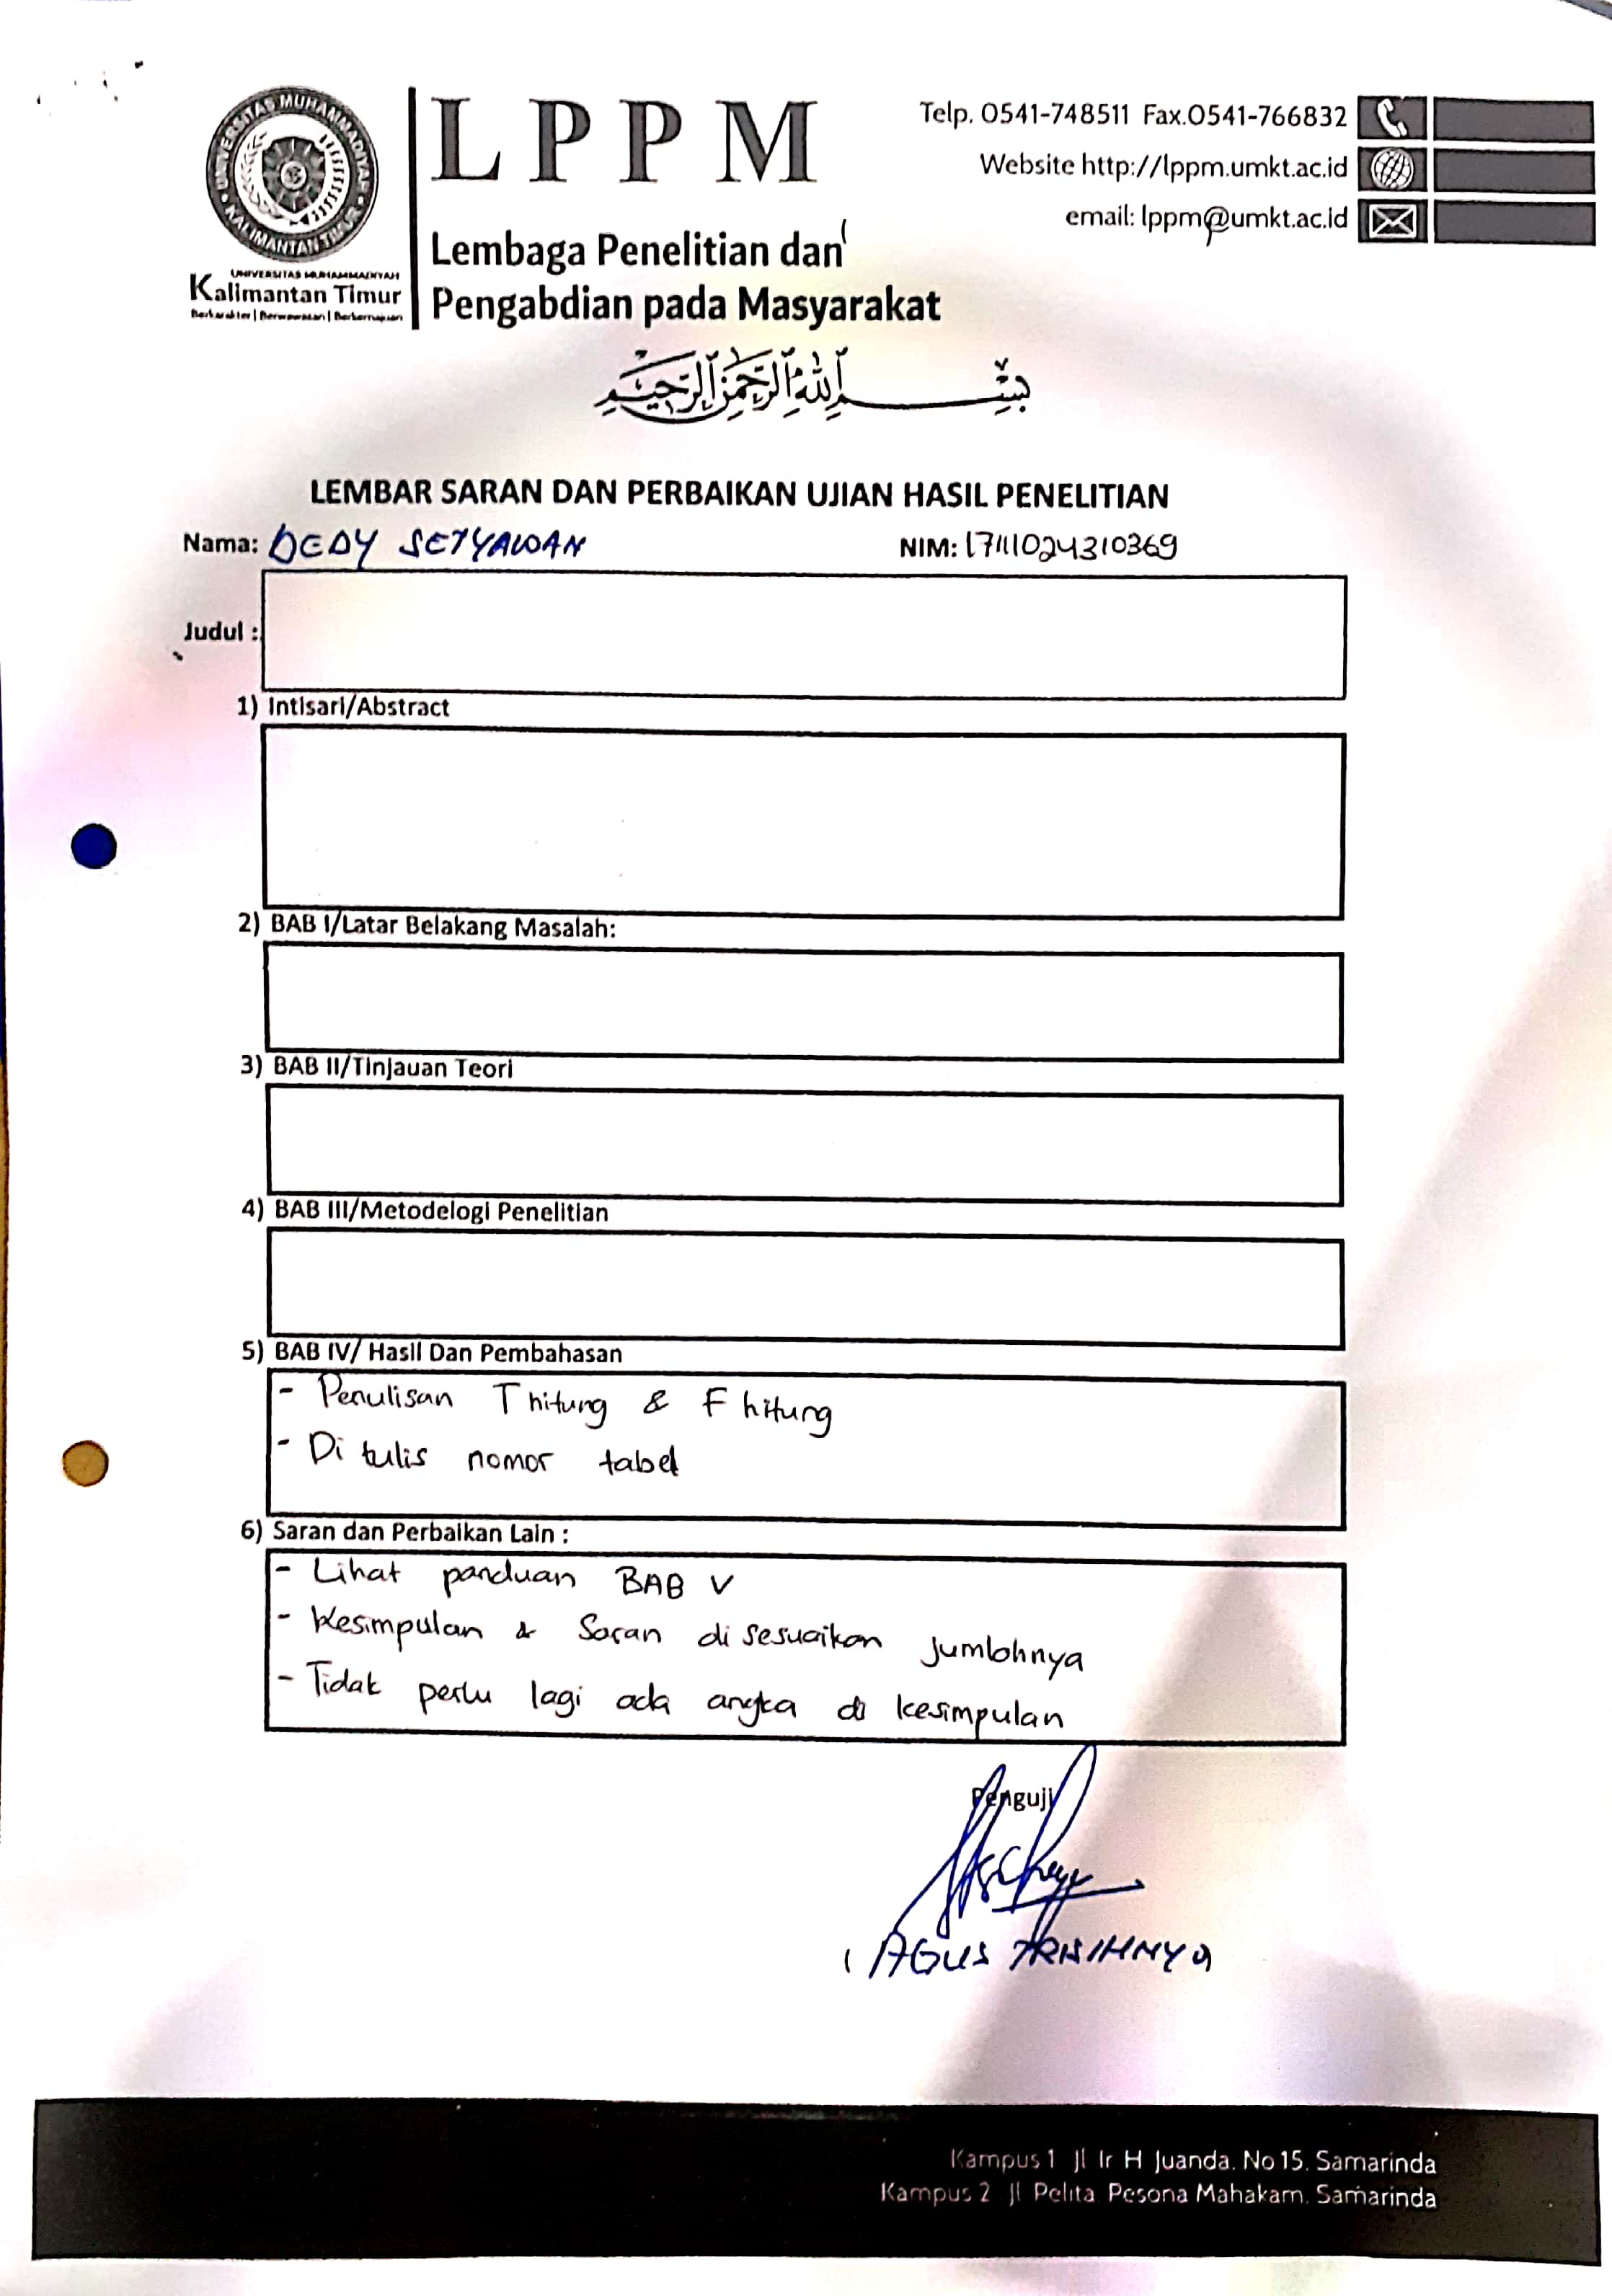 UNIVERSITAS MUHAMMADIYAH
KALIMANTAN TIMUR
UNIVERSITAS MUHAMMADIYAH
Kalimantan Timur
Berkarakter | Berwawasan | Berkemajuan
LPPM
Lembaga Penelitian dan
Pengabdian pada Masyarakat
Telp. 0541-748511 Fax.0541-766832
Website http://lppm.umkt.ac.id
email: lppm@umkt.ac.id
بِسْمِ اللهِ الرَّحْمَنِ الرَّحِيمِ
LEMBAR SARAN DAN PERBAIKAN UJIAN HASIL PENELITIAN
Nama: DEDY SETYAWAN NIM: 17111024310369
Judul :
1) Intisari/Abstract
2) BAB I/Latar Belakang Masalah:
3) BAB II/Tinjauan Teori
4) BAB III/Metodelogi Penelitian
5) BAB IV/ Hasil Dan Pembahasan
- Penulisan T hitung & F hitung
- Di tulis nomor tabel
6) Saran dan Perbaikan Lain :
- Lihat panduan BAB V
- Kesimpulan & Saran di sesuaikan jumlahnya
- Tidak perlu lagi ada angka di kesimpulan
Penguji
AGUS
Kampus 1 Jl Ir H Juanda. No 15. Samarinda
Kampus 2 Jl Pelita Pesona Mahakam. Samarinda